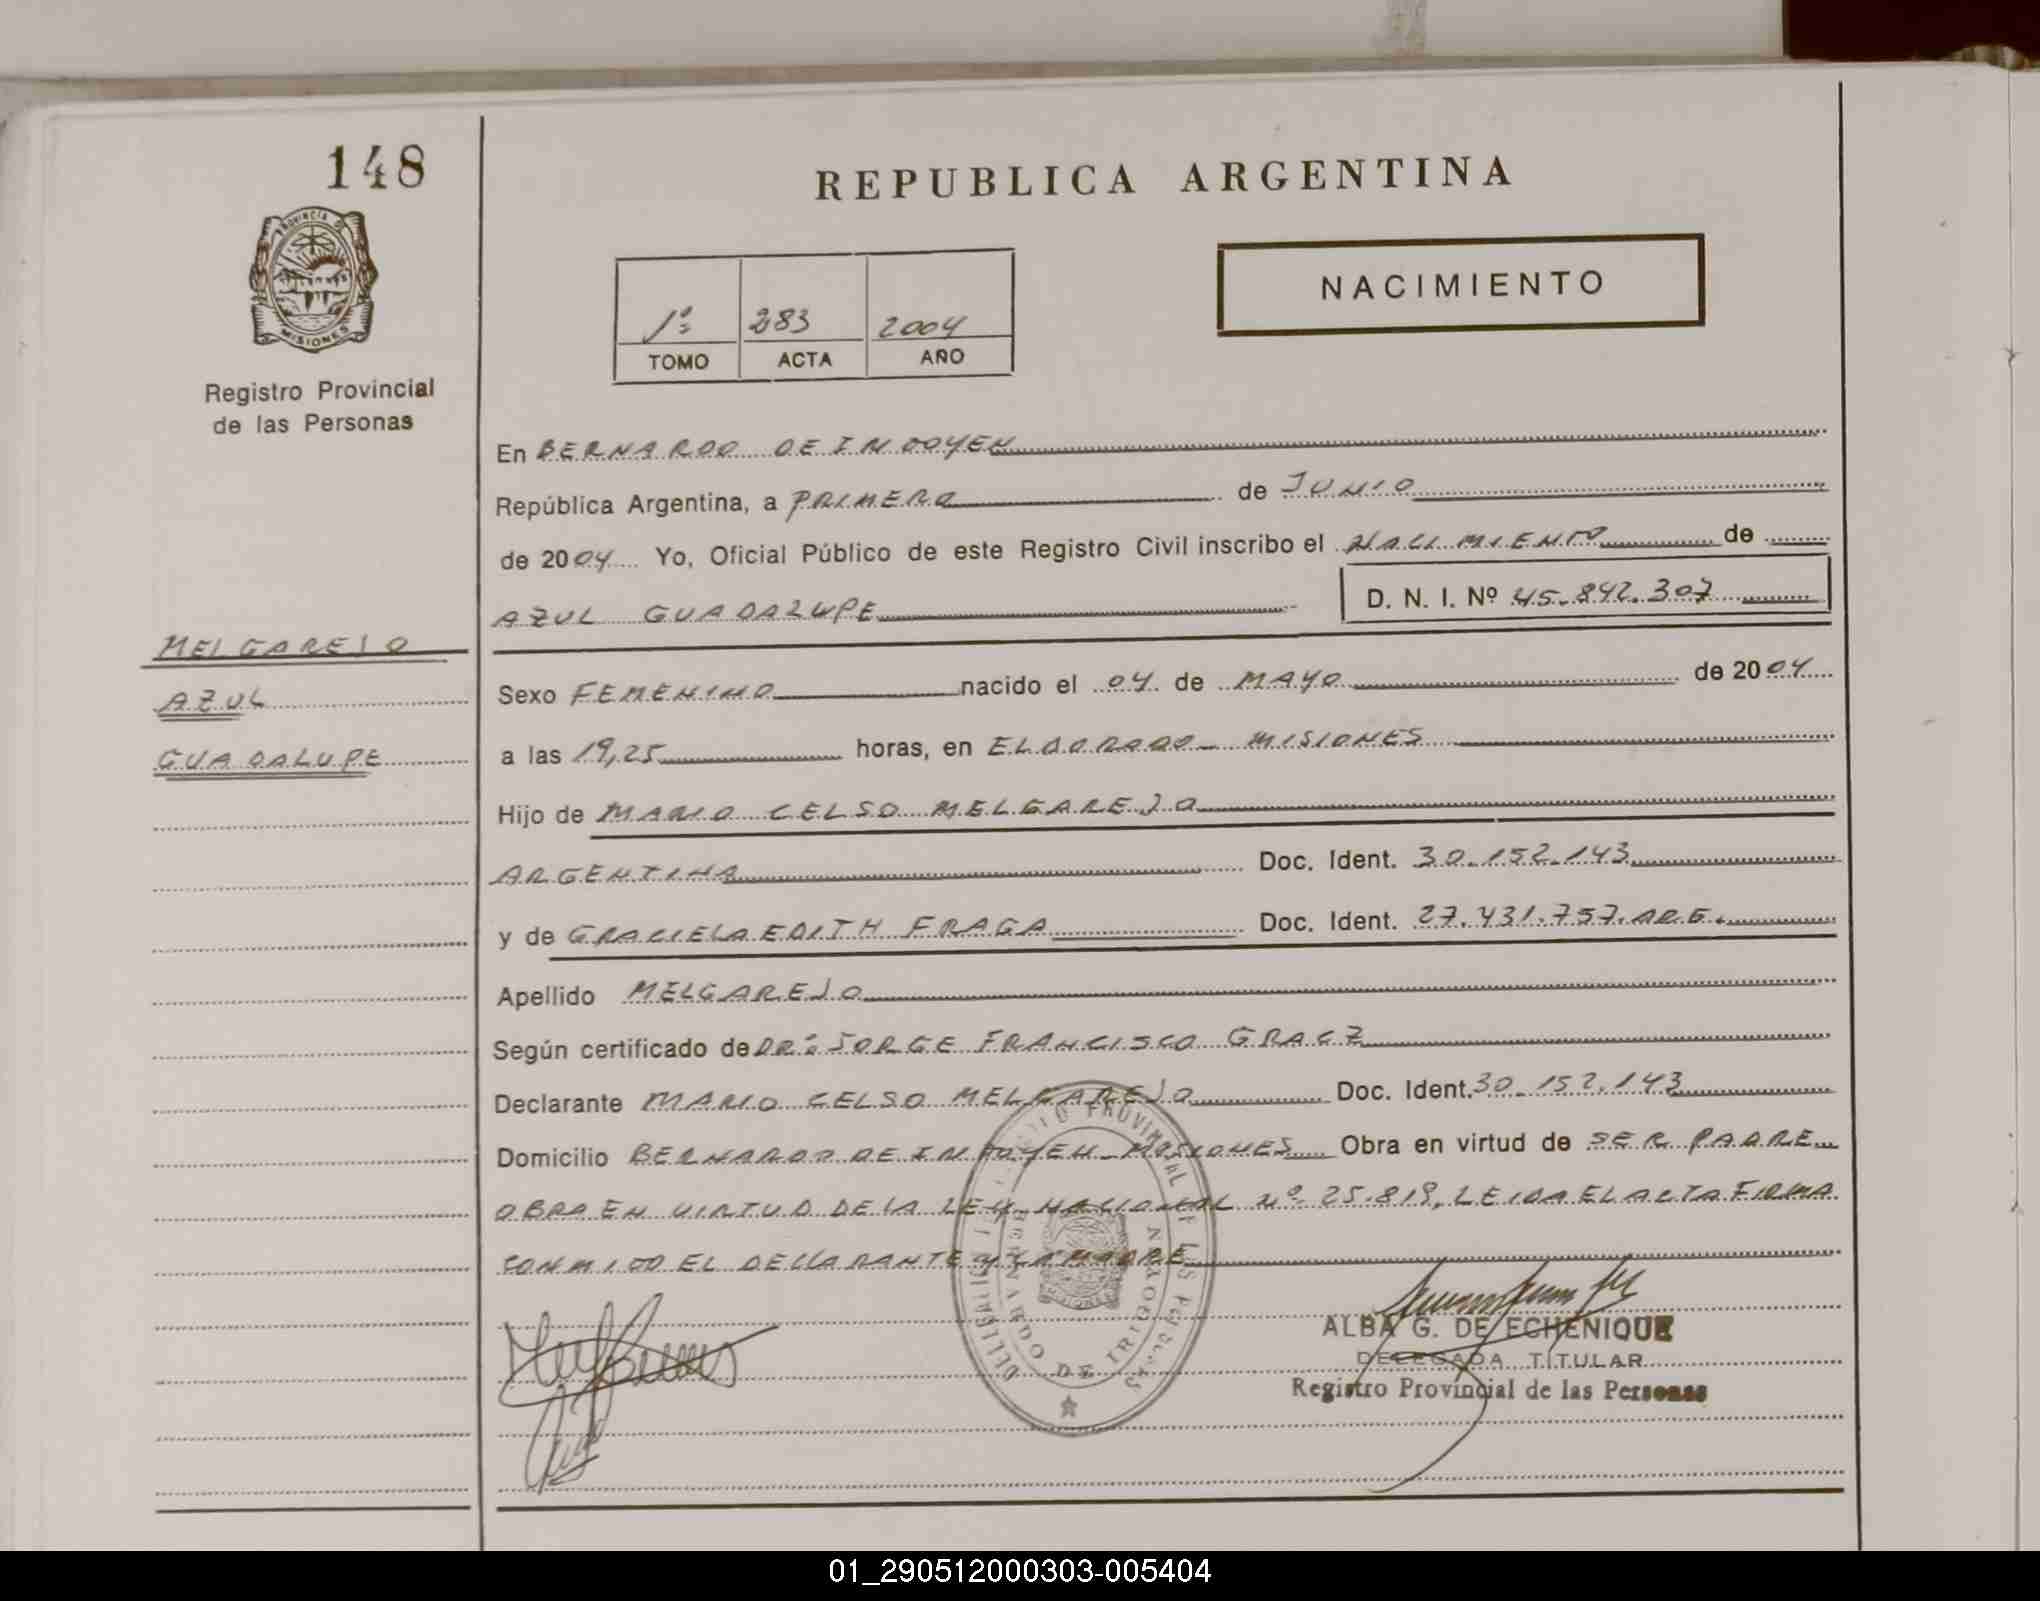 148
REPUBLICA ARGENTINA
PROVINCIA DE
MISIONES
Registro Provincial
de las Personas
NACIMIENTO
1º 283 2004
TOMO ACTA AÑO
En BERNARDO DE IRIGOYEN
República Argentina, a PRIMERO de JUNIO
de 2004 Yo, Oficial Público de este Registro Civil inscribo el NACIMIENTO de
AZUL GUADALUPE D. N. I. Nº 45.842.307
MELGAREJO
AZUL
GUADALUPE
Sexo FEMENINO nacido el 04 de MAYO de 2004
a las 19,25 horas, en ELDORADO - MISIONES
Hijo de MARIO CELSO MELGAREJO
ARGENTINA Doc. Ident. 30.152.143
y de GRACIELA EDITH FRAGA Doc. Ident. 27.431.757. ARG.
Apellido MELGAREJO
Según certificado de DR: JORGE FRANCISCO GRACZ
Declarante MARIO CELSO MELGAREJO Doc. Ident. 30.152.143
Domicilio BERNARDO DE IRIGOYEN - MISIONES Obra en virtud de SER PADRE
OBRA EN VIRTUD DE LA LEY NACIONAL Nº 25.819, LEIDA EL ACTA FIRMA
CONMIGO EL DECLARANTE Y LA MADRE
BERNARDO DE IRIGOYEN
ALBA G. DE ECHENIQUE
DELEGADA TITULAR
Registro Provincial de las Personas
01_290512000303-005404